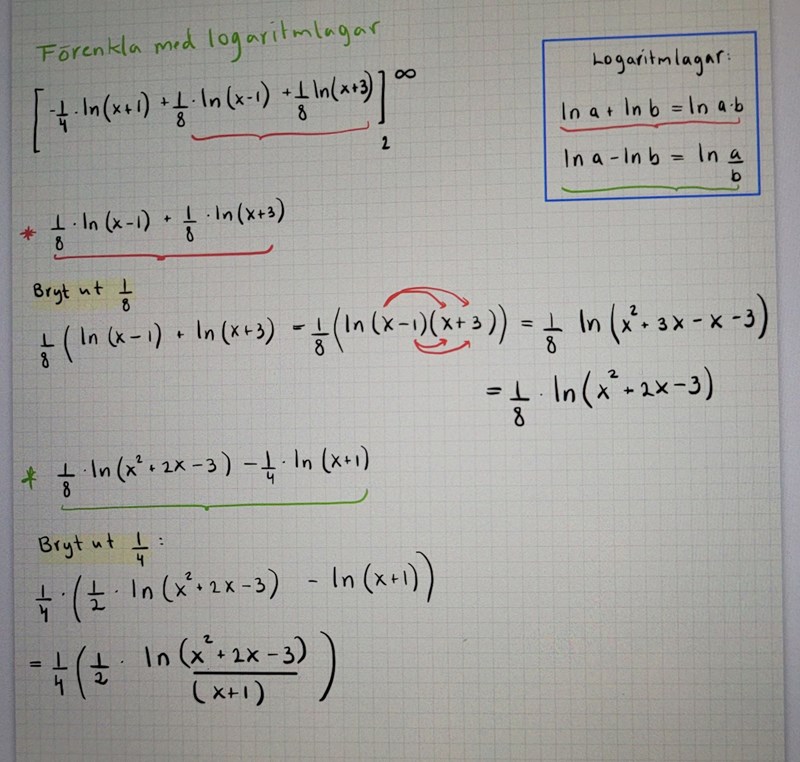 Förenkla med logaritmlagar
[-1/4 · ln(x+1) + 1/8 · ln(x-1) + 1/8 ln(x+3)]₂^∞
Logaritmlagar:
ln a + ln b = ln a·b
ln a - ln b = ln a/b
* 1/8 · ln(x-1) + 1/8 · ln(x+3)
Bryt ut 1/8
1/8 (ln(x-1) + ln(x+3) = 1/8 (ln(x-1)(x+3)) = 1/8 ln(x²+3x-x-3)
= 1/8 · ln(x²+2x-3)
* 1/8 · ln(x²+2x-3) - 1/4 · ln(x+1)
Bryt ut 1/4:
1/4 · (1/2 · ln(x²+2x-3) - ln(x+1))
= 1/4 (1/2 · ln (x²+2x-3)/(x+1))